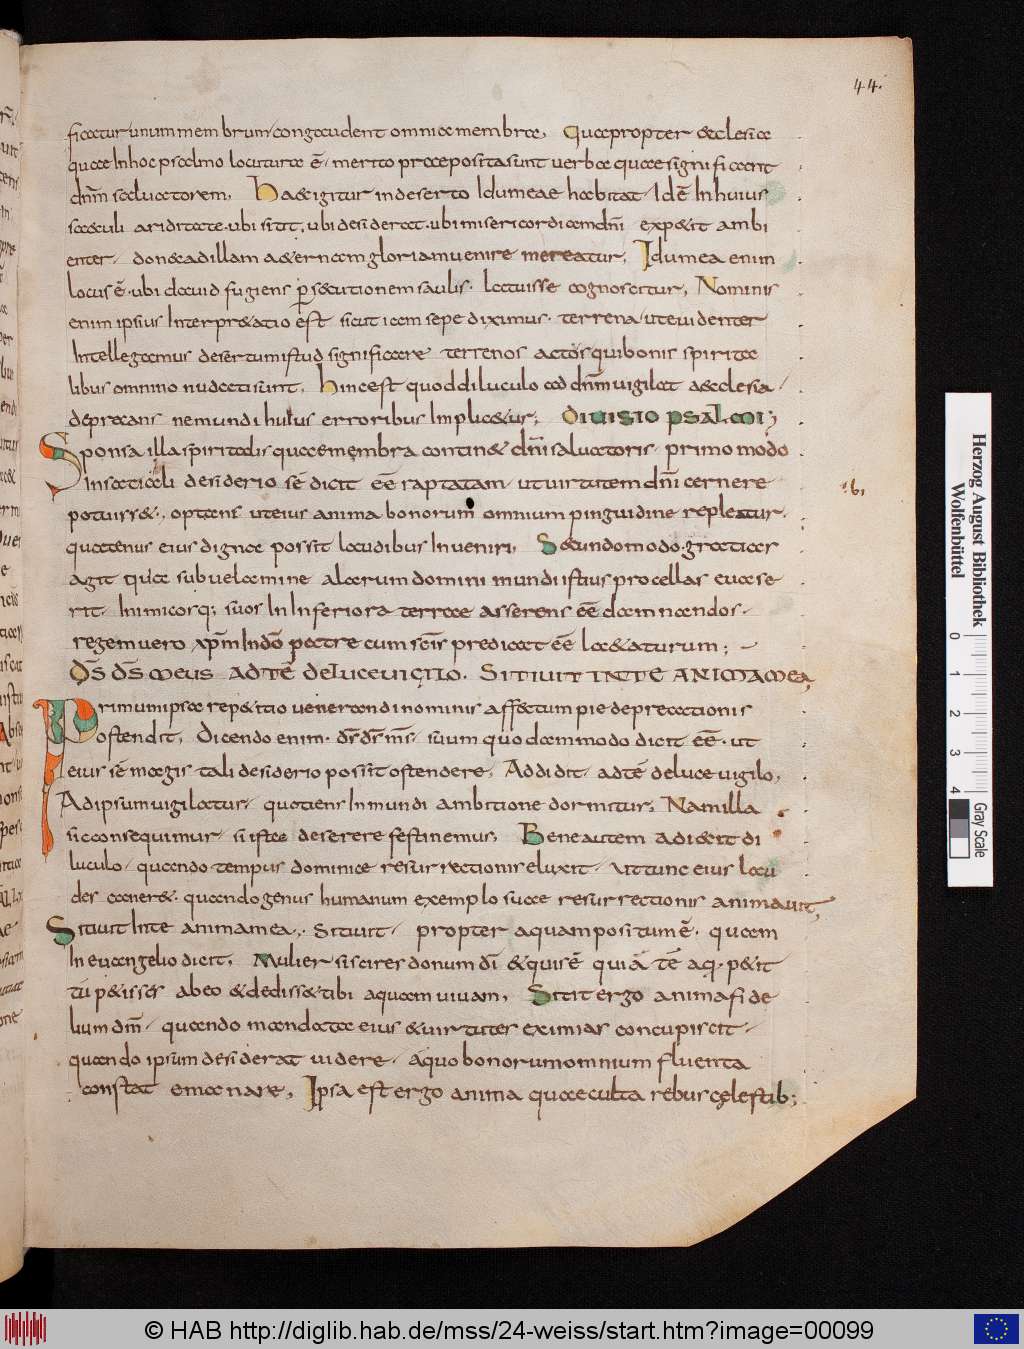 44.
ficatur unum membrum congaudent omnia membra, Quapropter ecclesiae
quae In hoc psalmo locutura ē· merito praeposita sunt verba quae significant
dnm̄ saluatorem, Haec igitur in deserto Idumeae habitat Idē In huius
saeculi ariditate· ubi sitit, ubi desiderat· ubi misericordiam dnī expetit ambi
enter· donec ad illam aeternam gloriam uenire mereatur, Idumea enim
locus ē· ubi dauid fugiens p̱secutionem saulis· latuisse cognoscitur, Nominis
enim ipsius Interpretatio est sicut iam sepe diximus· terrena ut euidenter
Intellegamus desertum istud significare terrenos actos qui bonis spirita
libus omnino nudati sunt, Hinc est quod diluculo ad dnm̄ uigilat aecclesia·
deprecans ne mundi huius erroribus Implicetur; DIVISIO PSALMI;
Sponsa illa spiritalis quae membra continet dnī saluatoris· primo modo
In sæculi desiderio sē dicit eē raptatam· ut uirtutem dnī cernere
potuisset·, optans ut eius anima bonorum omnium pinguidine repleatur·
quatenus eius digna possit laudibus Inueniri, Secundo modo· gratias
agit quia sub uelamine alarum domini mundi istius procellas euase
rit· Inimicosq; suos In Inferiora terrae asserens eē damnandos·
regem uero xp̄m In dnō patre cum scīs predicat eē laetaturum;
DS̄ DS̄ MEUS AD TĒ DE LUCE VIGILO. SITIVIT IN TE ANIMA MEA,
Prium ipsa repetitio uenerandi nominis affectum pie deprecationis
ostendit, Dicendo enim· ds̄ ds̄ ms̄· suum quodammodo dicit eē· ut
eius sē magis tali desiderio possit ostendere, Addidit· ad tē de luce uigilo,
Ad ipsum uigilatur· quotiens In mundi ambitione dormitur, Nam illa
sic consequimur· si ista deserere festinemus, Bene autem adiecit di
luculo· quando tempus dominicae resurrectionis eluxit· ut tunc eius lau
des caneret· quando genus humanum exemplo suae resurrectionis animauit,
Sitiuit In te anima mea,· Sitiuit· propter aquam positum ē· quam
In euangelio dicit, Mulier si scires donum dī et quis ē qui a tē aq· petit
tū petisses ab eo et dedisset tibi aquam uiuam, Sitit ergo anima fide
lium dnm̄· quando mandata eius et uirtutes eximias concupiscit·
quando ipsum desiderat uidere· a quo bonorum omnium fluenta
constat emanare, Ipsa est ergo anima quae culta rebus cęlestib;
Herzog August Bibliothek
Wolfenbüttel
0 1 2 3 4
Gray Scale
© HAB http://diglib.hab.de/mss/24-weiss/start.htm?image=00099